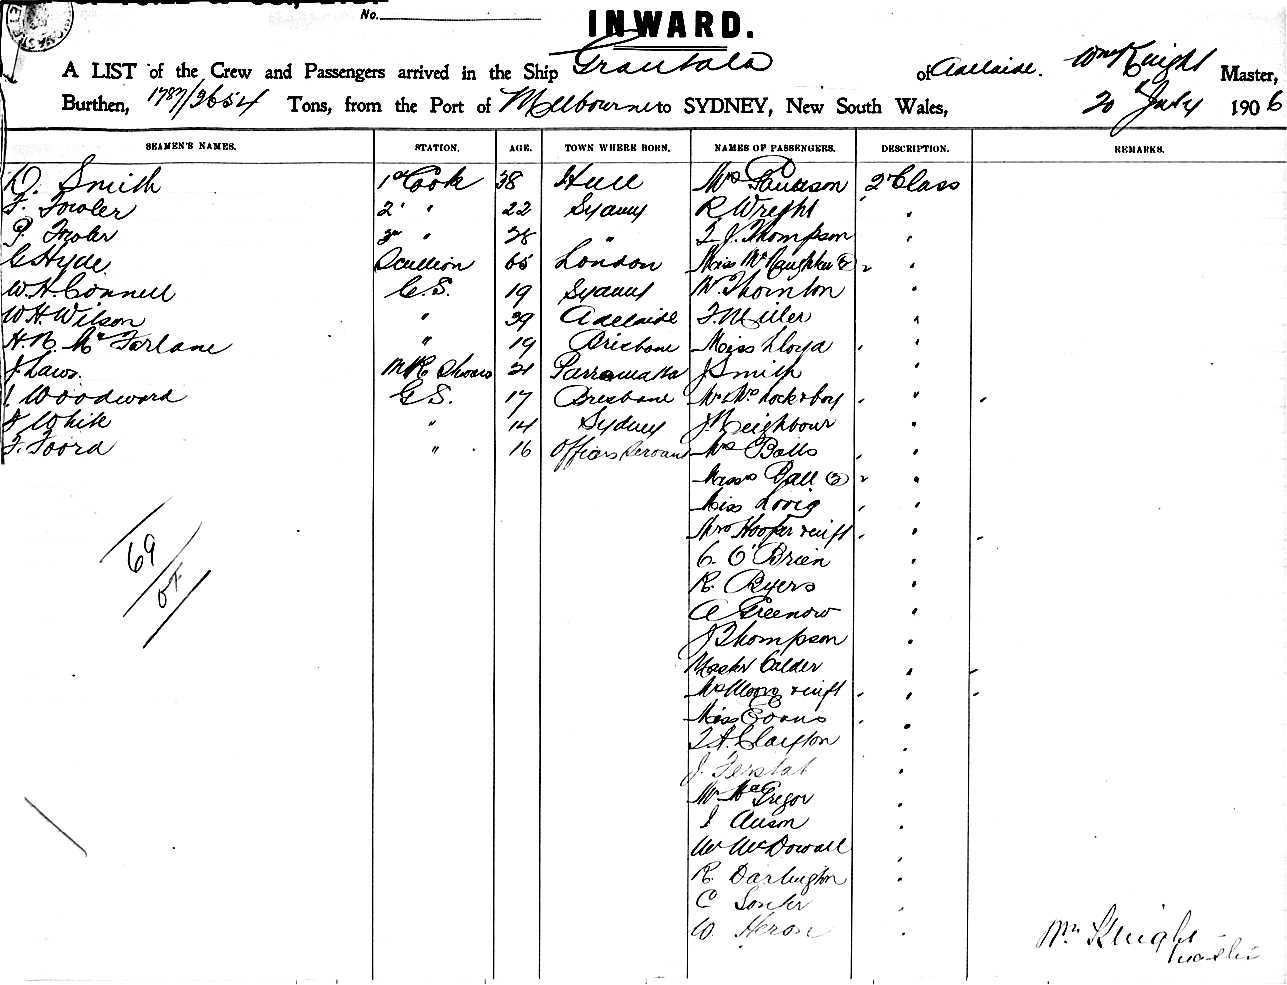 No.
INWARD.
A LIST of the Crew and Passengers arrived in the Ship Grantala of Adelaide. Wm Knight Master,
Burthen, 1787/3654 Tons, from the Port of Melbourne to SYDNEY, New South Wales, 20 July 1906
SEAMEN'S NAMES. STATION. AGE. TOWN WHERE BORN. NAMES OF PASSENGERS. DESCRIPTION. REMARKS.
D. Smith 1st Cook 38 Hull Mrs 2nd Class
F. Fowler 2nd " 22 Sydney R Wright "
P. Fowler 3rd " 28 " T J. Thompson "
C Hyde Scullion 65 London Miss (2) "
W.H. Connell G.S. 19 Sydney W. Thornton "
W.H. Wilson " 39 Adelaide F. Miller "
H.R. McFarlane " 19 Brisbane Miss Lloyd "
J Laws. 21 Parramatta J Smith "
J Woodward G.S. 17 Brisbane Mr & Mrs & boy "
J White " 14 Sydney J. Neighbour "
F. Foord " 16 Officers Servant Mrs Balls "
Misses Ball (2) "
Miss "
Mrs Hooper & inft "
C. O'Brien "
R. Byers "
A Greenow "
J Thompson "
Master Calder "
Mrs Moon & inft "
Miss Evans "
T A. Clayton "
J. "
Mr McGregor "
J "
Mr McDowall "
R. Darlington "
C "
W Heron "
69
Wm Knight
Master